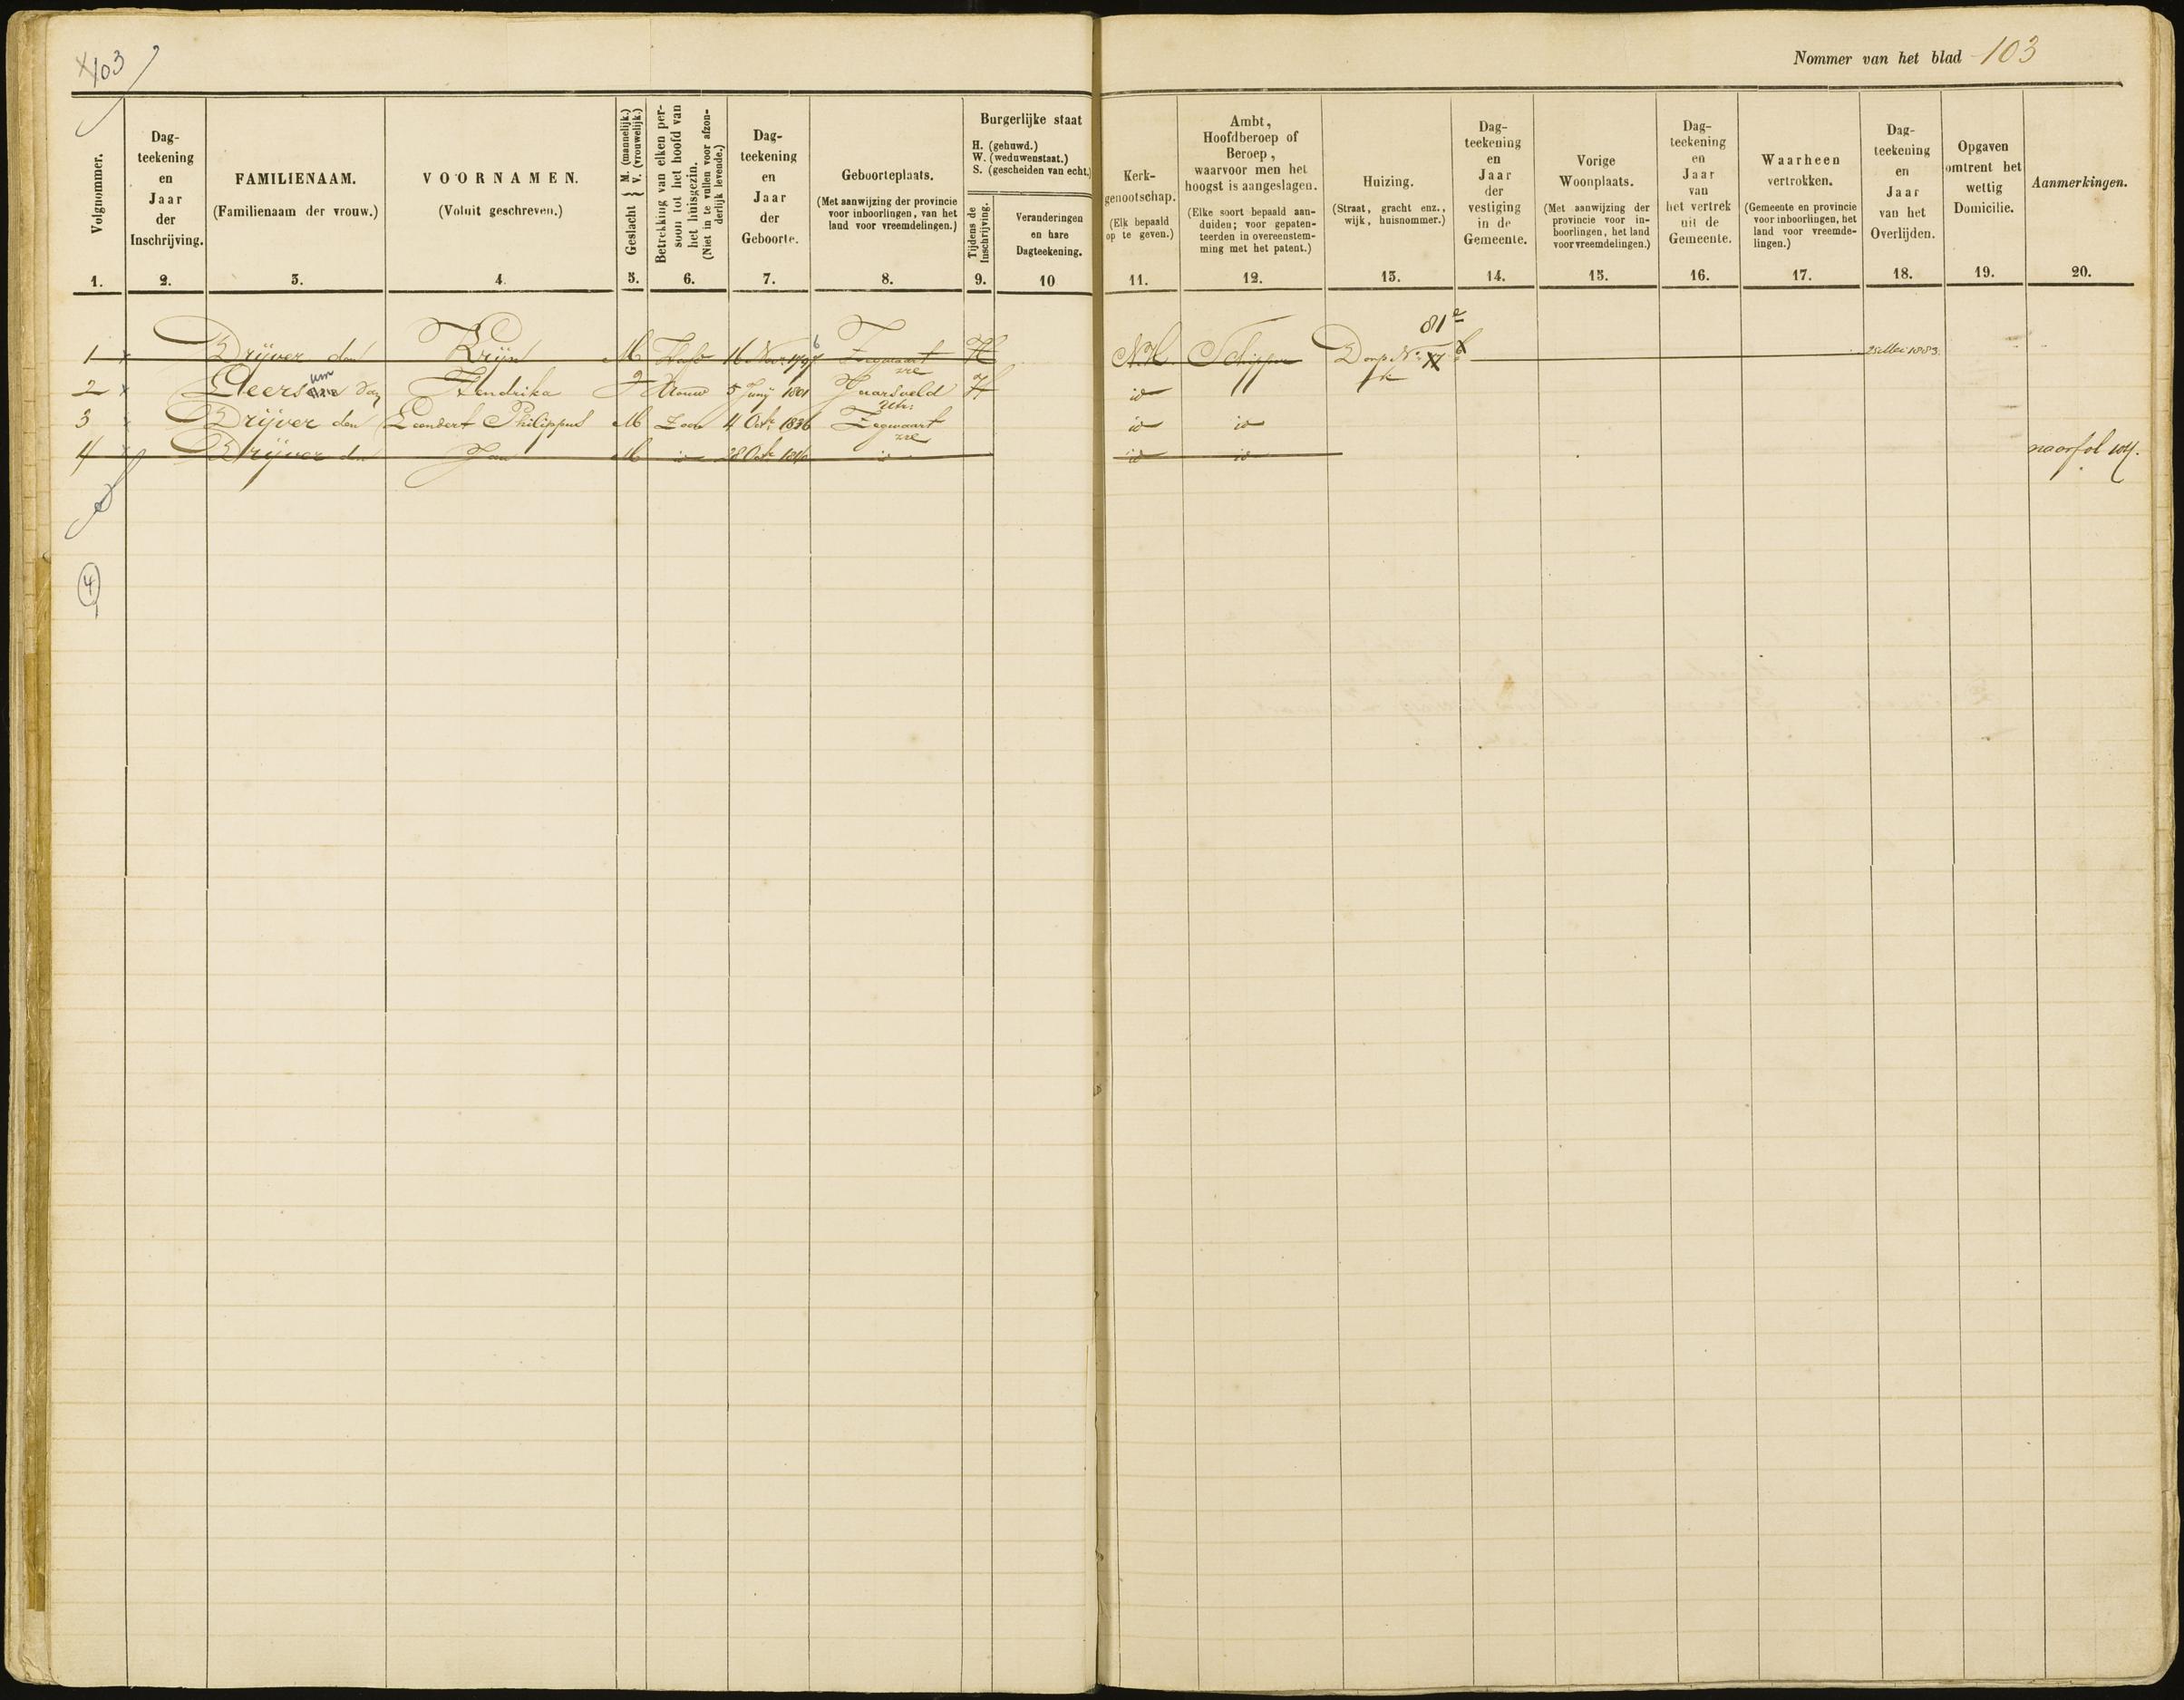 103
Nommer van het blad 103
Volgnommer.
Dag-
teekening
en
Jaar
der
Inschrijving.
FAMILIENAAM.
(Familienaam der vrouw.)
VOORNAMEN.
(Voluit geschreven.)
Geslacht { M. (mannelijk.) V. (vrouwelijk.)
Betrekking van elken per-
soon tot het hoofd van
het huisgezin.
(Niet in te vullen voor afzon-
derlijk levende.)
Dag-
teekening
en
Jaar
der
Geboorte.
Geboorteplaats.
(Met aanwijzing der provincie
voor inboorlingen, van het
land voor vreemdelingen.)
Burgerlijke staat
H. (gehuwd.)
W. (weduwenstaat.)
S. (gescheiden van echt.)
Tijdens de
Inschrijving.
Veranderingen
en hare
Dagteekening.
Kerk-
genootschap.
(Elk bepaald
op te geven.)
Ambt,
Hoofdberoep of
Beroep,
waarvoor men het
hoogst is aangeslagen.
(Elke soort bepaald aan-
duiden; voor gepaten-
teerden in overeenstem-
ming met het patent.)
Huizing.
(Straat, gracht enz.,
wijk, huisnommer.)
Dag-
teekening
en
Jaar
der
vestiging
in de
Gemeente.
Vorige
Woonplaats.
(Met aanwijzing der
provincie voor in-
boorlingen, het land
voor vreemdelingen.)
Dag-
teekening
en
Jaar
van
het vertrek
uit de
Gemeente.
Waarheen
vertrokken.
(Gemeente en provincie
voor inboorlingen, het
land voor vreemde-
lingen.)
Dag-
teekening
en
Jaar
van het
Overlijden.
Opgaven
omtrent het
wettig
Domicilie.
Aanmerkingen.
1. 2. 3. 4. 5. 6. 7. 8. 9. 10 11. 12. 13. 14. 15. 16. 17. 18. 19. 20.
81
1 Drijver den Krijn M Hoofd 16 Nov: Zegwaart H N.H. Schipper Dorp No: 25 Mei 1883
zre
2 Leers van Hendrika Vrouw 5 Junij 1801 Jaarsveld H id
Utr:
3 Drijver den Leendert Philippus M Zoon 4 Octr 1836 Zegwaart id id
zre
4 Drijver den Jan M id 28 Octr id id id naar fol 104.
4